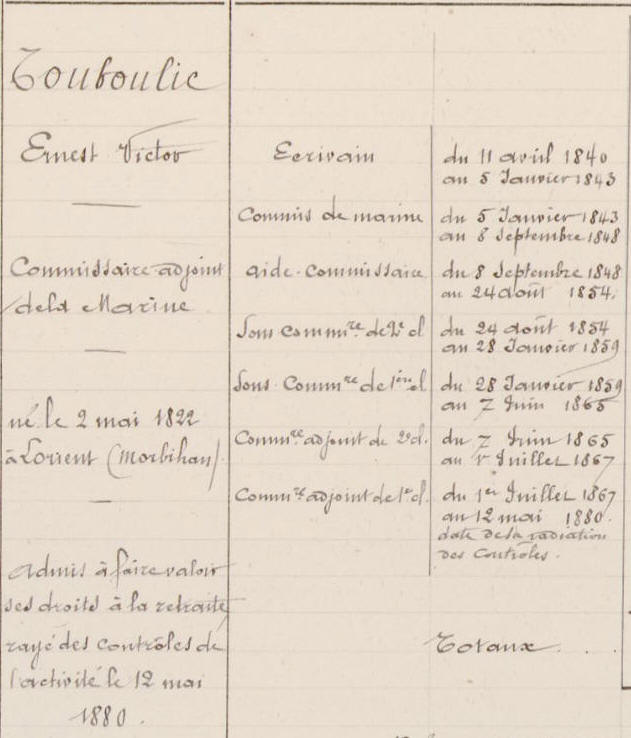 Touboulic
Ernest Victor
Commissaire-adjoint
de la Marine
né le 2 mai 1822
à Lorient (Morbihan).
Admis à faire valoir
ses droits à la retraite,
rayé des contrôles de
l'activité le 12 mai
1880.
Ecrivain
du 11 avril 1840
au 5 Janvier 1843
Commis de marine
du 5 Janvier 1843
au 8 Septembre 1848
aide-commissaire
du 8 Septembre 1848
au 24 août 1854.
Sous-commre de 2e cl
du 24 août 1854
au 28 Janvier 1859
Sous-Commre de 1ère cl
du 28 Janvier 1859
au 7 Juin 1865
Commre adjoint de 2e cl.
du 7 Juin 1865
au 1er Juillet 1867
Commre adjoint de 1e cl.
du 1er Juillet 1867
au 12 mai 1880.
date de sa radiation
des Contrôles.
Totaux